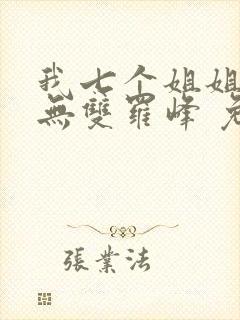 我七个姐姐
無雙羅峰
張業法